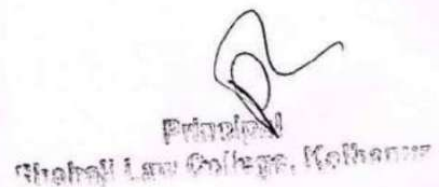 Principal
Shahaji Law College, Kolhapur